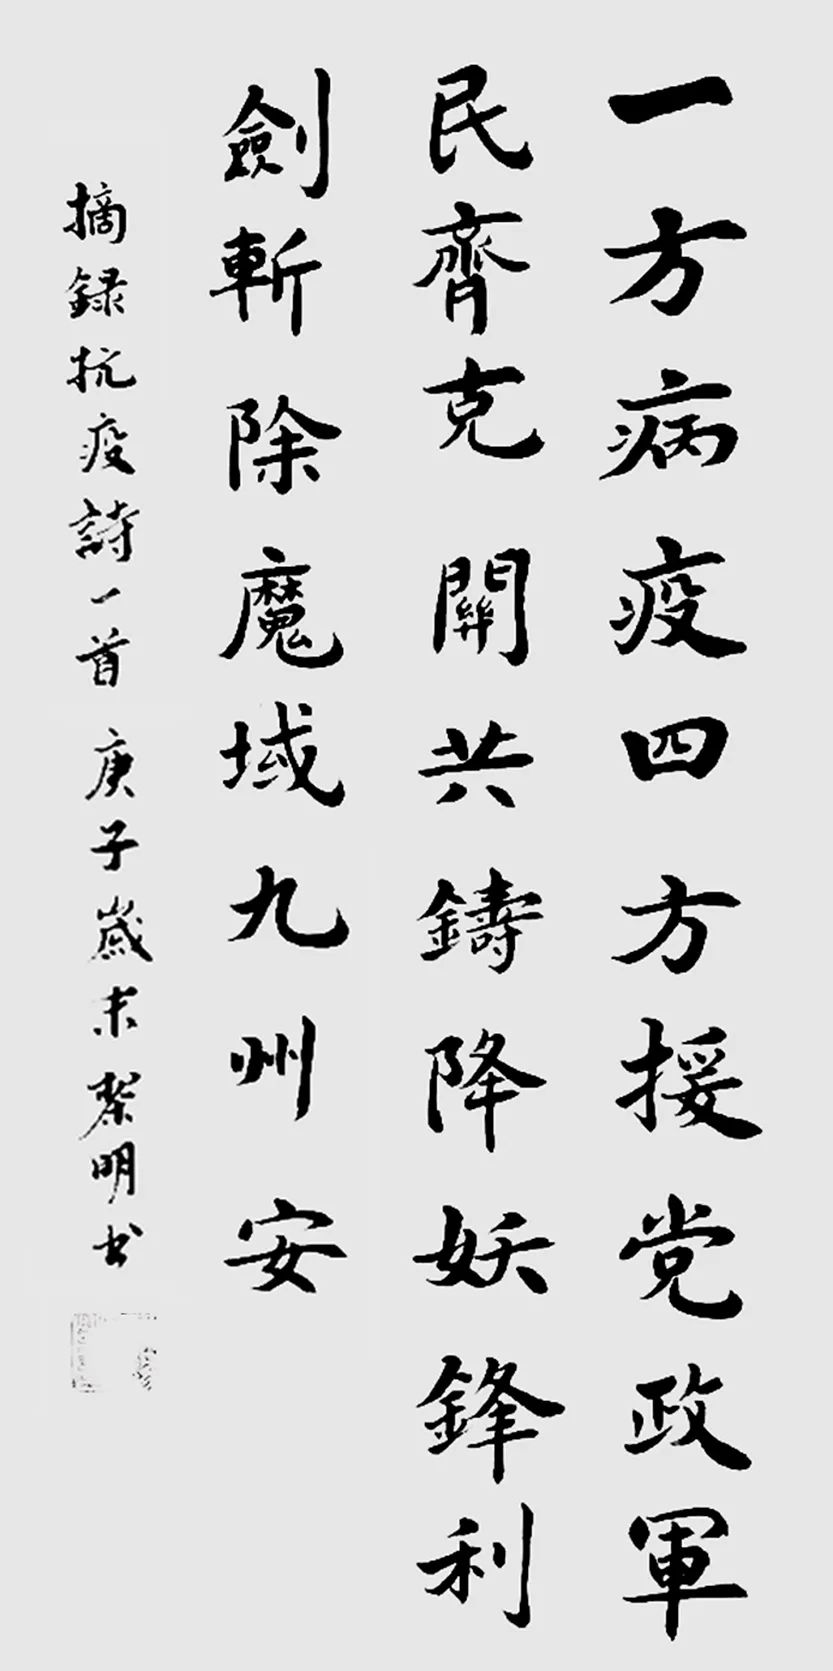 一方病疫四方援党政軍
民齊克關共鑄降妖鋒利
劍斬除魔域九州安
摘録抗疫詩一首庚子歲末黎明书